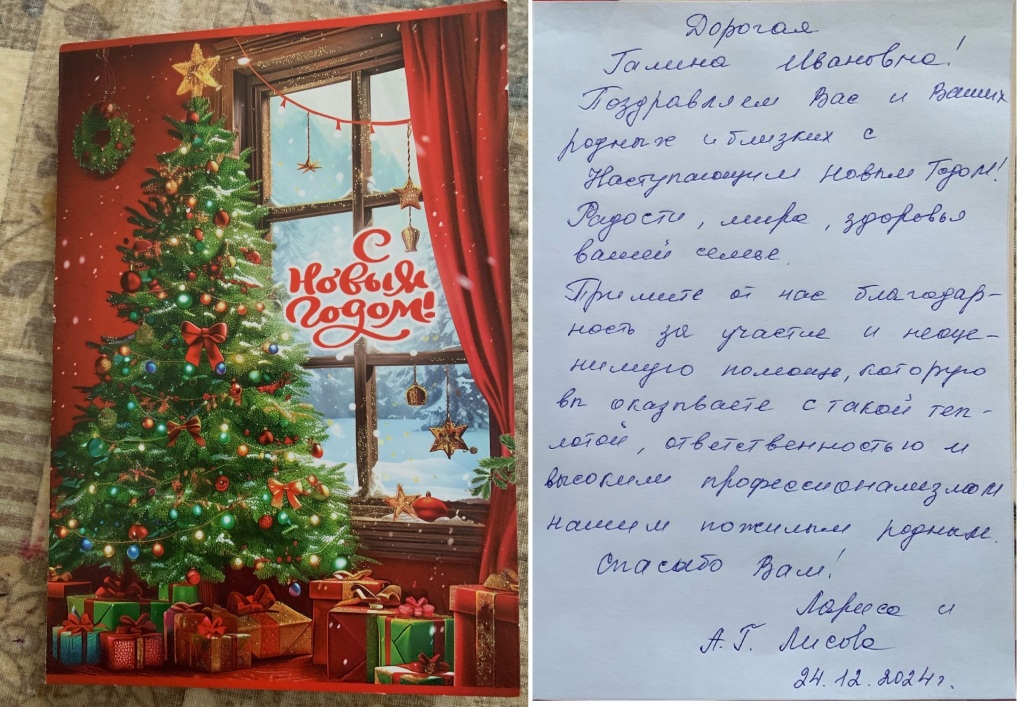 С
Новым
Годом!
Дорогая
Галина Ивановна!
Поздравляем Вас и Ваших
родных и близких с
Наступающим Новым Годом!
Радости, мира, здоровья
вашей семье.
Примите от нас благодар-
ность за участие и неоце-
нимую помощь, которую
вы оказываете с такой теп-
лотой, ответственностью и
высоким профессионализмом
нашим пожилым родным.
Спасибо Вам!
Лариса и
А.Г. Лисова
24.12.2024г.